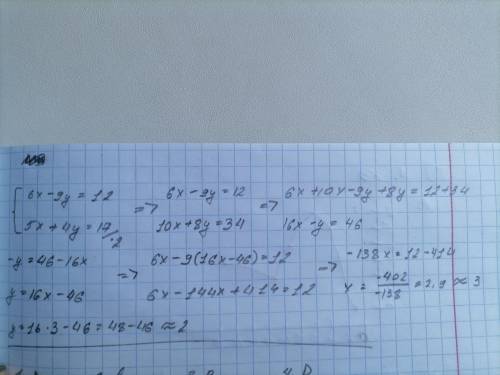 { 6x - 9y = 12 => 6x - 9y = 12 => 6x + 10x - 9y + 8y = 12 + 34
5x + 4y = 17 /·2 10x + 8y = 34 16x - y = 46
-y = 46 - 16x => 6x - 9(16x - 46) = 12 => -138x = 12 - 414
y = 16x - 46 6x - 144x + 414 = 12 x = -402/-138 = 2,9 ≈ 3
y = 16·3 - 46 = 48 - 46 ≈ 2